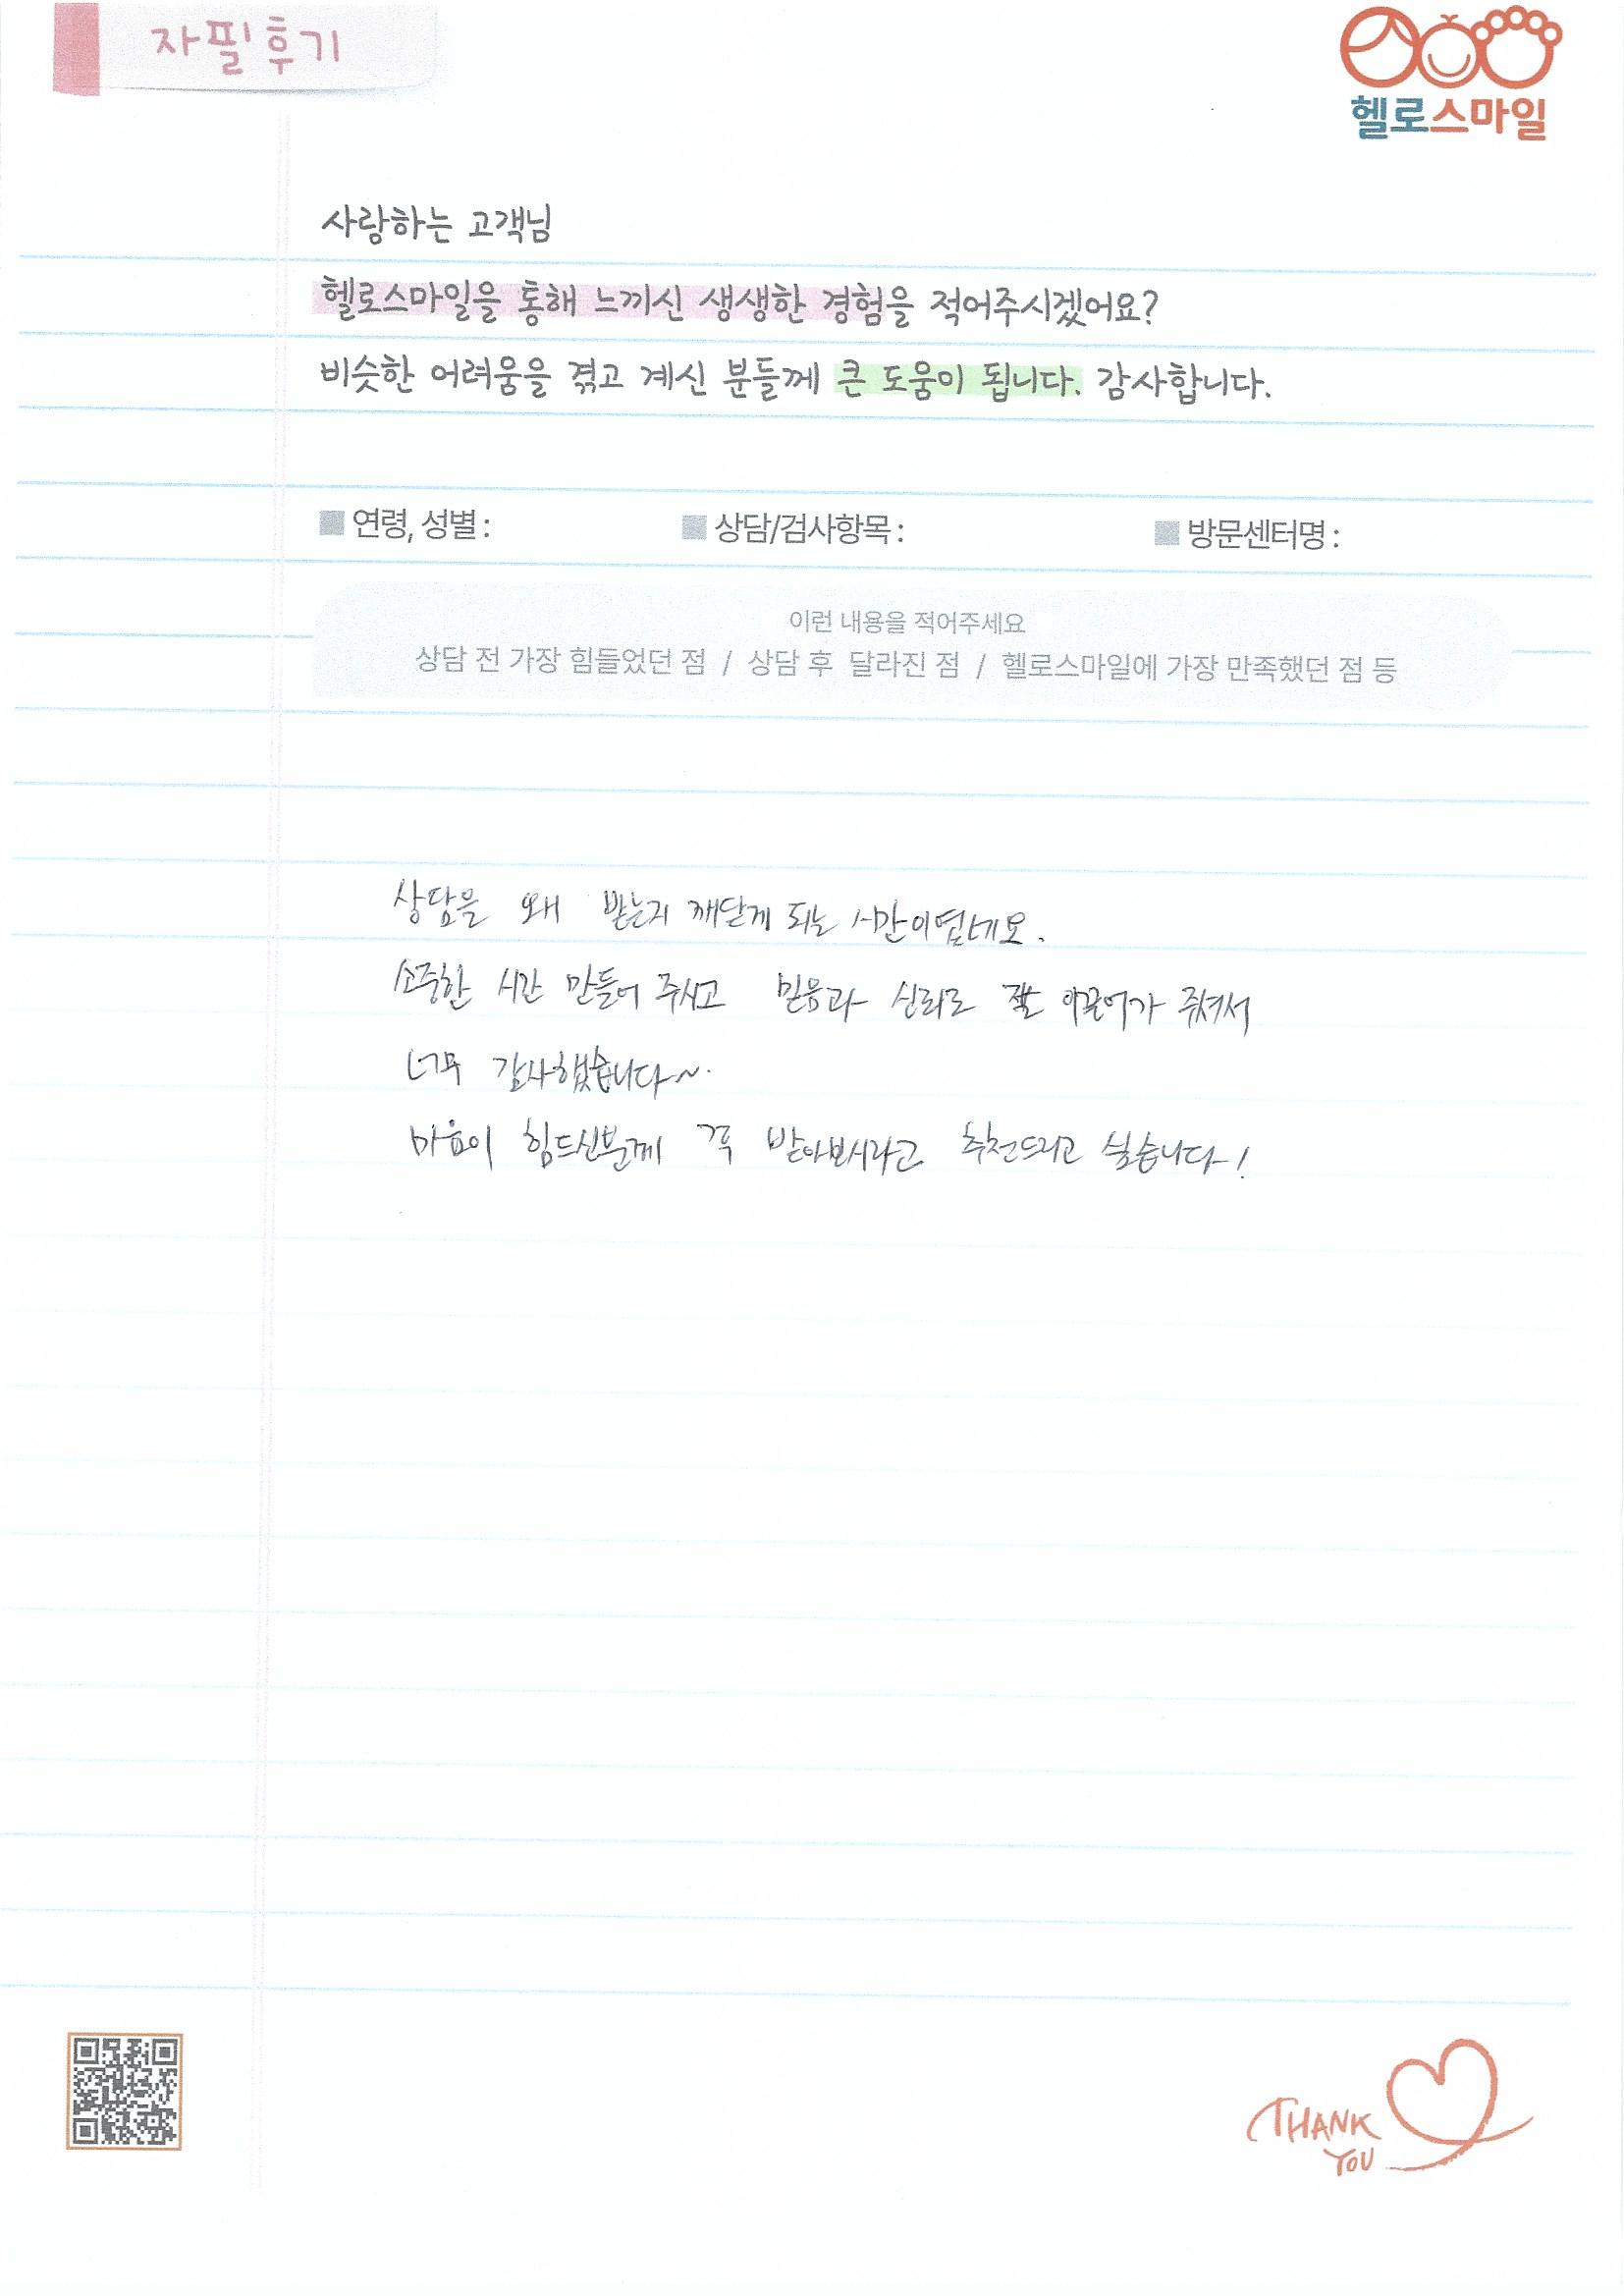 자필후기
헬로스마일
사랑하는 고객님
헬로스마일을 통해 느끼신 생생한 경험을 적어주시겠어요?
비슷한 어려움을 겪고 계신 분들께 큰 도움이 됩니다. 감사합니다.
연령, 성별 : 상담/검사항목 : 방문센터명 :
이런 내용을 적어주세요
상담 전 가장 힘들었던 점 / 상담 후 달라진 점 / 헬로스마일에 가장 만족했던 점 등
상담을 왜 받는지 깨닫게 되는 시간이였네요.
소중한 시간 만들어 주시고 믿음과 신뢰로 잘 이끌어가 줘셔서
너무 감사했습니다~.
마음이 힘드신분께 꼭 받아보시라고 추천드리고 싶습니다!
THANK
YOU